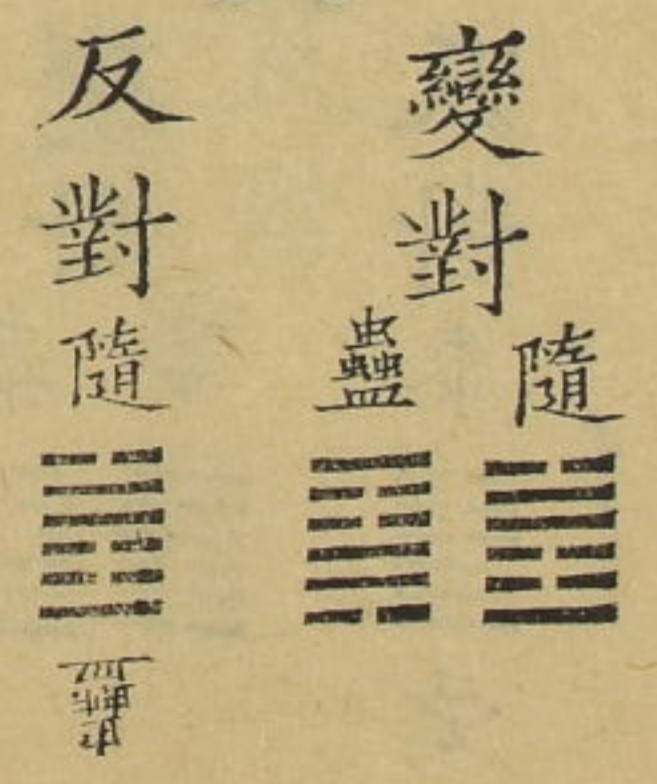 變對
隨
蠱
反對
隨
蠱